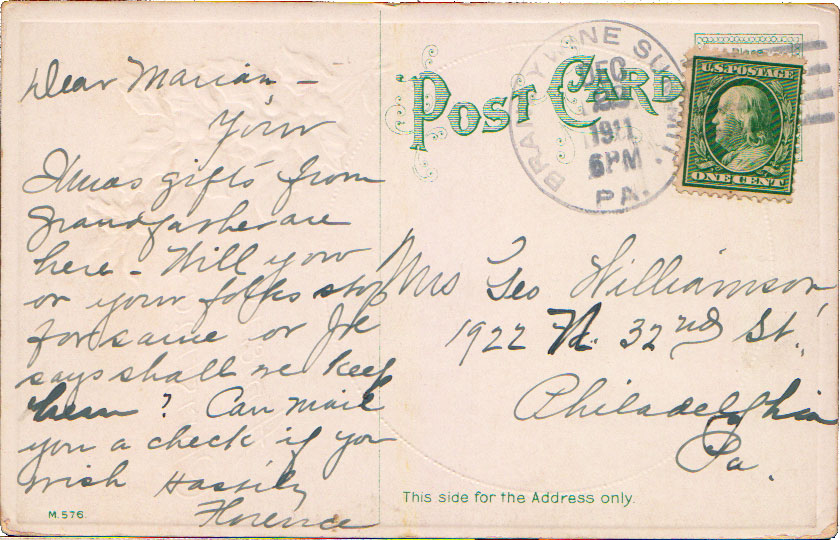 Dear Marian, —
Your
Xmas gifts from
Grandfather are
here — Will you
or your folks stop
for same or Joe
says shall we keep
them? Can mail
you a check if you
wish Hastily
Florence
M. 576.
POST CARD
BRANDYWINE SUMMIT.
DEC
1911
6 PM
PA.
U.S. POSTAGE
ONE CENT
Mrs Geo Williamson,
1922 N. 32nd St.,
Philadelphia
Pa.
This side for the Address only.